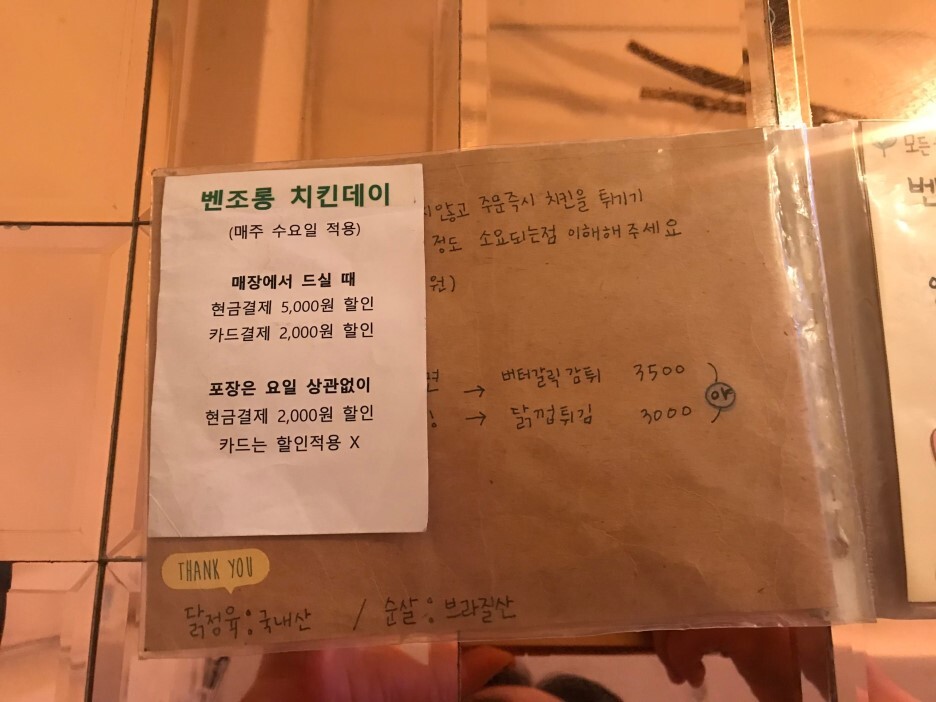 벤조롱 치킨데이
(매주 수요일 적용)
매장에서 드실 때
현금결제 5,000원 할인
카드결제 2,000원 할인
포장은 요일 상관없이
현금결제 2,000원 할인
카드는 할인적용 X
지않고 주문즉시 치킨을 튀기기
정도 소요되는점 이해해주세요
원)
면 → 버터갈릭감튀 3500
→ 닭껍튀김 3000
THANK YOU
닭정육:국내산 / 순살:브라질산
모든
벤